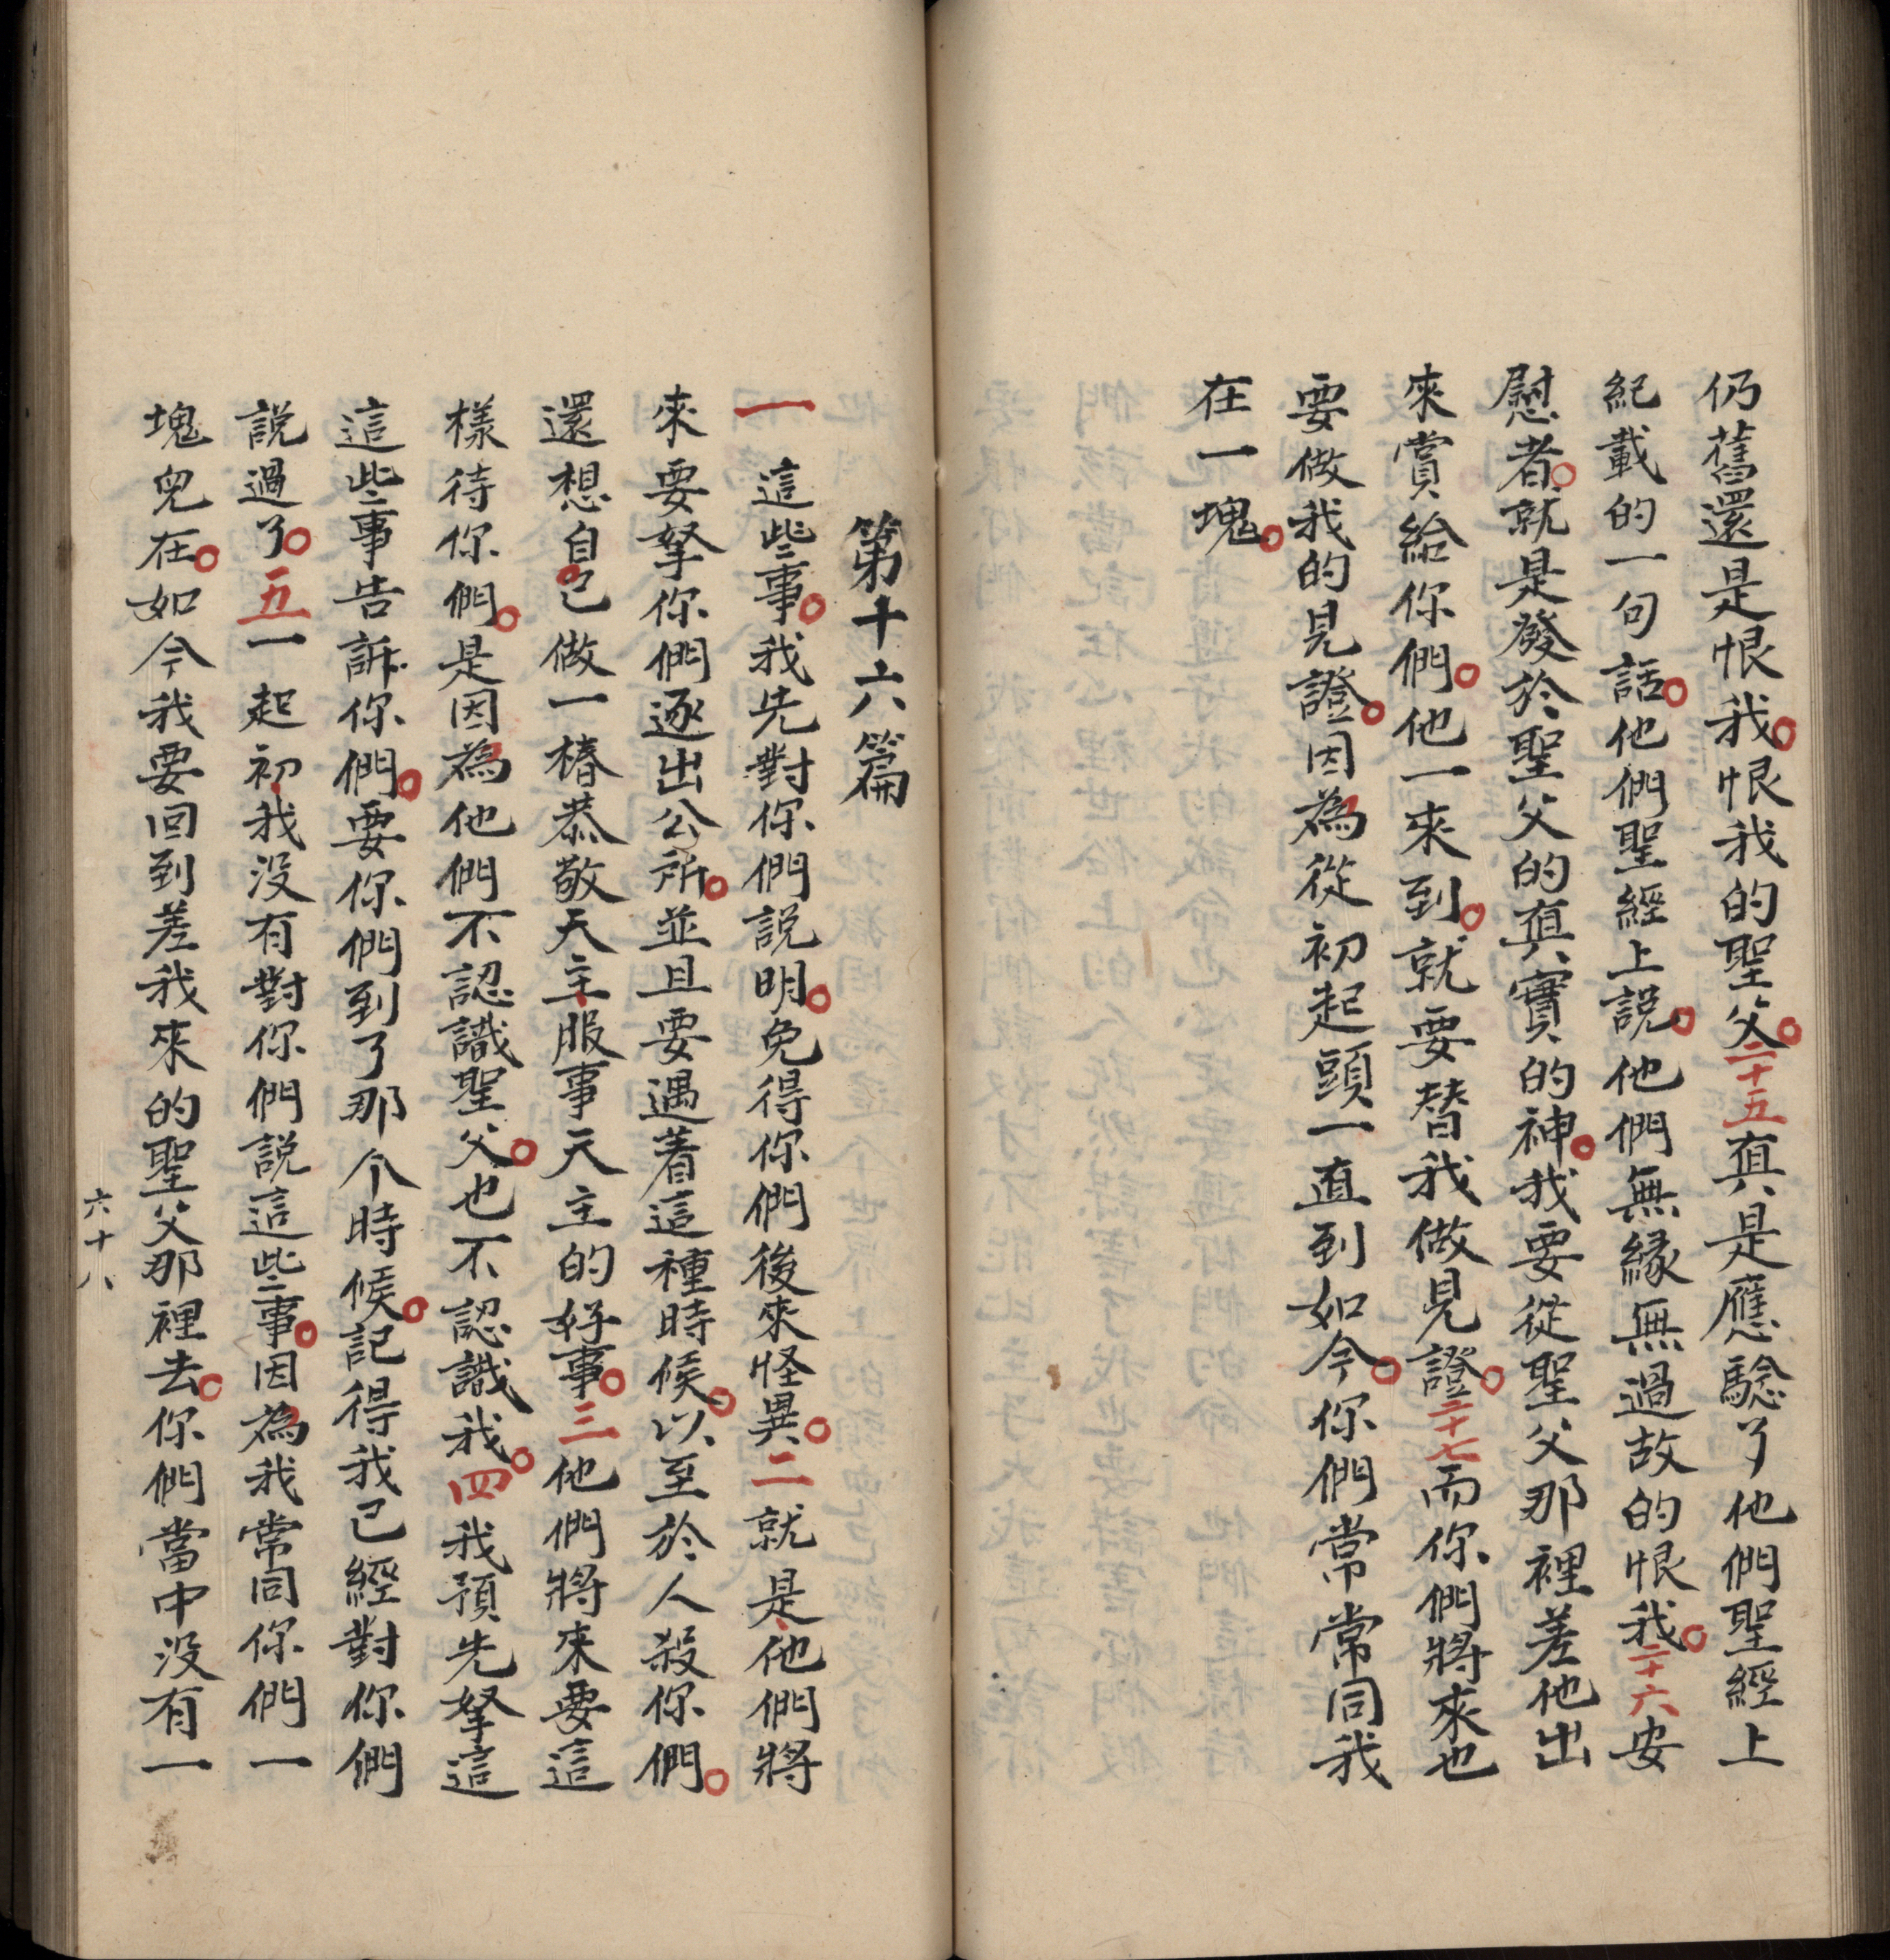 仍舊還是恨我。恨我的聖父。二十五真是應驗了他們聖經上
紀載的一句話。他們聖經上説。他們無緣無過故的恨我。二十六安
慰者。就是發於聖父的真實的神。我要從聖父那裡差他出
來賞給你們。他一來到。就要替我做見證。二十七而你們將來也
要做我的見證。因為從初起頭一直到如今。你們常常同我
在一塊。
第十六篇
一 這些事。我先對你們説明。免得你們後來怪異。二就是他們將
來要拏你們逐出公所。並且要遇着這種時候。以至於人殺你們。
還想自己做一樁恭敬天主服事天主的好事。三他們將來要這
樣待你們。是因為他們不認識聖父。也不認識我。四我預先拏這
這些事告訴你們。要你們到了那个時候。記得我已經對你們
説過了。五一起初我没有對你們説這些事。因為我常同你們一
塊兒在。如今我要回到差我來的聖父那裡去。你們當中没有一
六十八